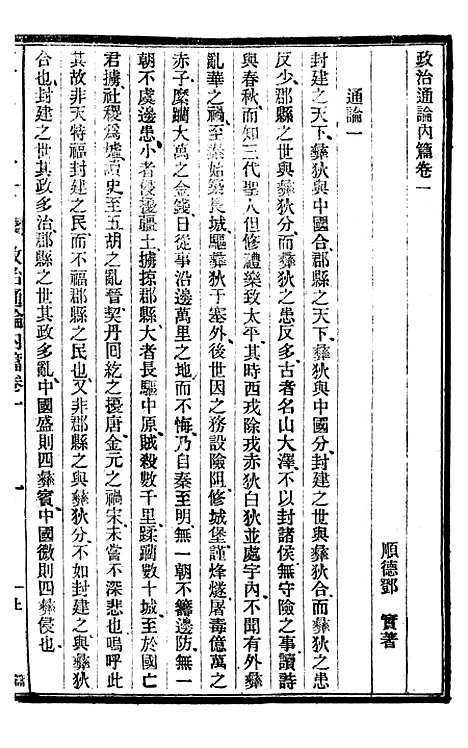 政治通論內篇卷一
順德鄧　實著
通論一
封建之天下彝狄與中國合郡縣之天下彝狄與中國分封建之世與彝狄合而彝狄之患
反少郡縣之世與彝狄分而彝狄之患反多古者名山大澤不以封諸侯無守險之事讀詩
與春秋而知三代聖人但修禮樂政太平其時西戎除戎赤狄白狄並處宇內不聞有外彝
亂華之禍至秦始皇築長城驅彝狄于塞外後世因之務設險阻修城堡謹烽燧屠毒億萬之
赤子縻蠲大萬之金錢日從事沿邊萬里之地而不悔乃自秦至明無一朝不籌邊防無一
朝不虞邊患小者侵擾疆土擄掠郡縣大者長驅中原賊殺數千里蹂躪數十城至於國亡
君擄社稷爲墟讀史至五胡之亂晉契丹回紇之擾唐金元之禍宋未嘗不深悲也嗚呼此
其故非天特福封建之民而不福郡縣之民也又非郡縣之與彝狄分不如封建之與彝狄
合也封建之世其政多治郡縣之世其政多亂中國盛則四彝賓中國微則四彝侵也
政治通論內篇卷一
一
上